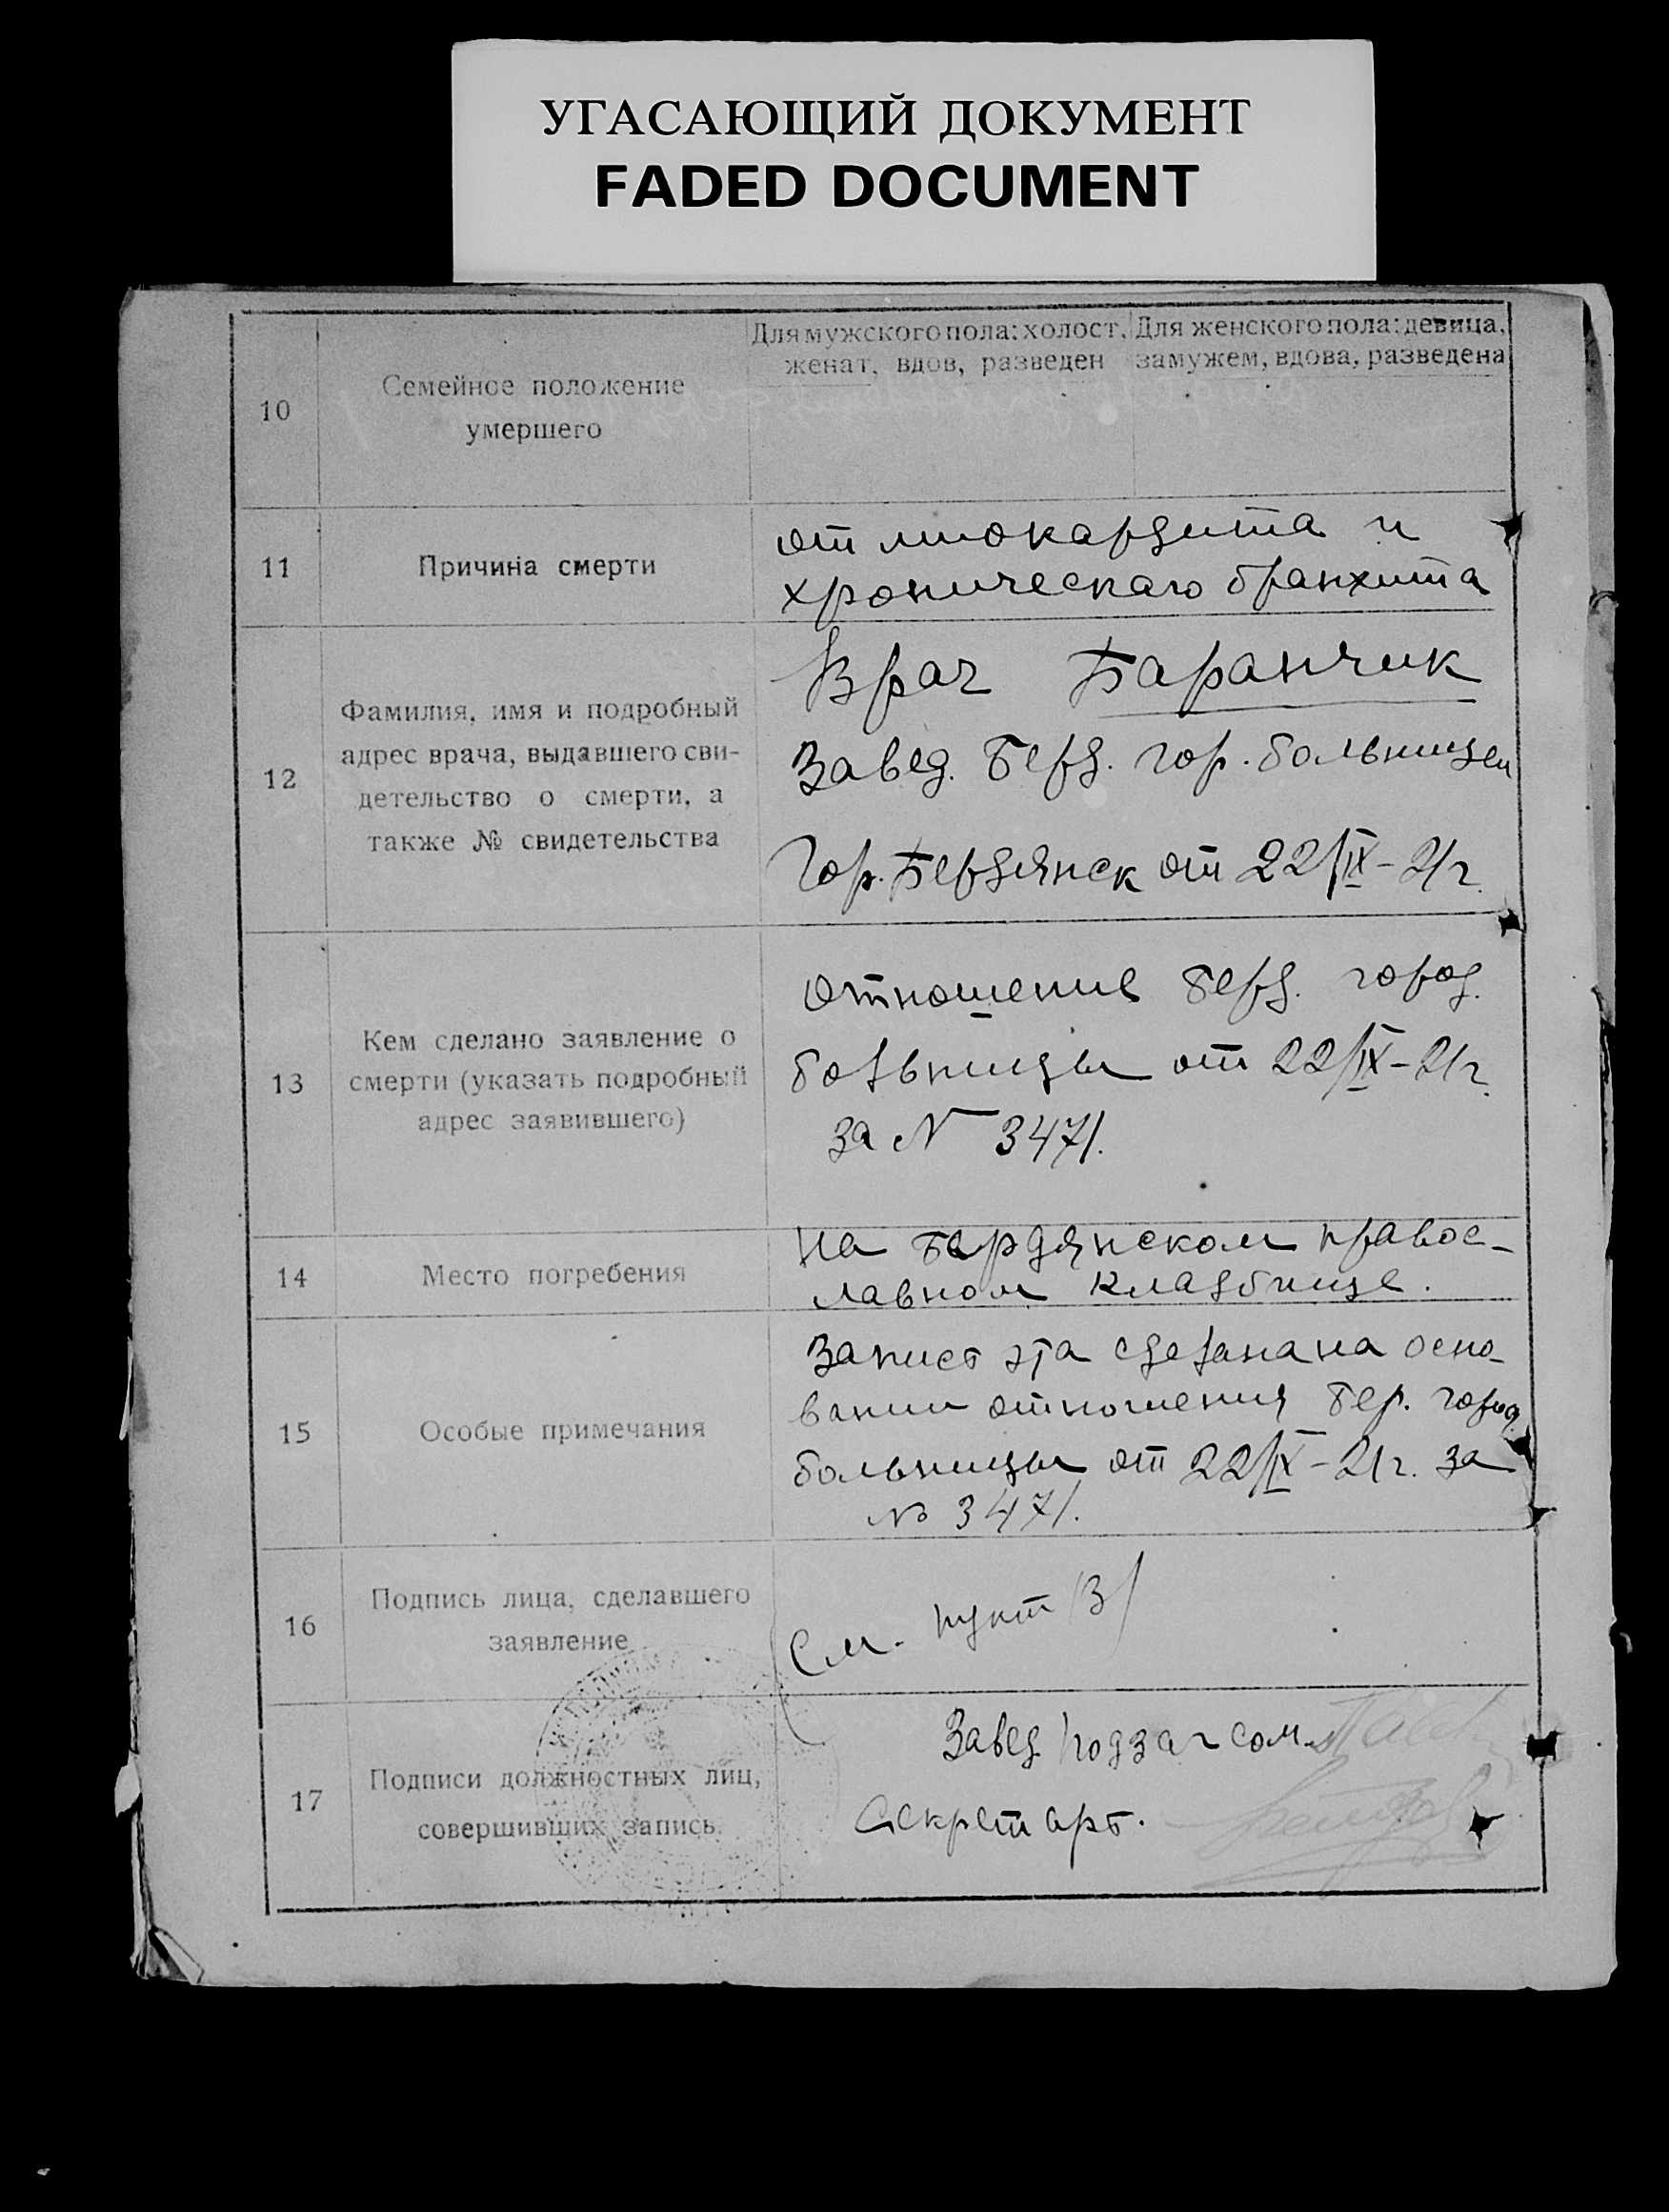 УГАСАЮЩИЙ ДОКУМЕНТ
FADED DOCUMENT
10
Семейное положение
умершего
Для мужского пола: холост,
женат, вдов, разведен
Для женского пола: девица,
замужем, вдова, разведена
11
Причина смерти
от миокардита и
хроническаго бранхита
12
Фамилия, имя и подробный
адрес врача, выдавшего сви-
детельство о смерти, а
также № свидетельства
Врач Баранчик
Завед. Берд. гор. больницей
Гор. Бердянск от 22/IX-21г.
13
Кем сделано заявление о
смерти (указать подробный
адрес заявившего)
Отношение Берд. город.
больницы от 22/IX-21г.
за N 3471.
14
Место погребения
На Бердянском правос-
лавном кладбище.
15
Особые примечания
Запись эта сделана на осно-
вании отношения Бер. город.
больницы от 22/IX-21г. за
№ 3471.
16
Подпись лица, сделавшего
заявление
См. пункт 13/
17
Подписи должностных лиц,
совершивших запись.
Завед. подзагсом
Секретарь.